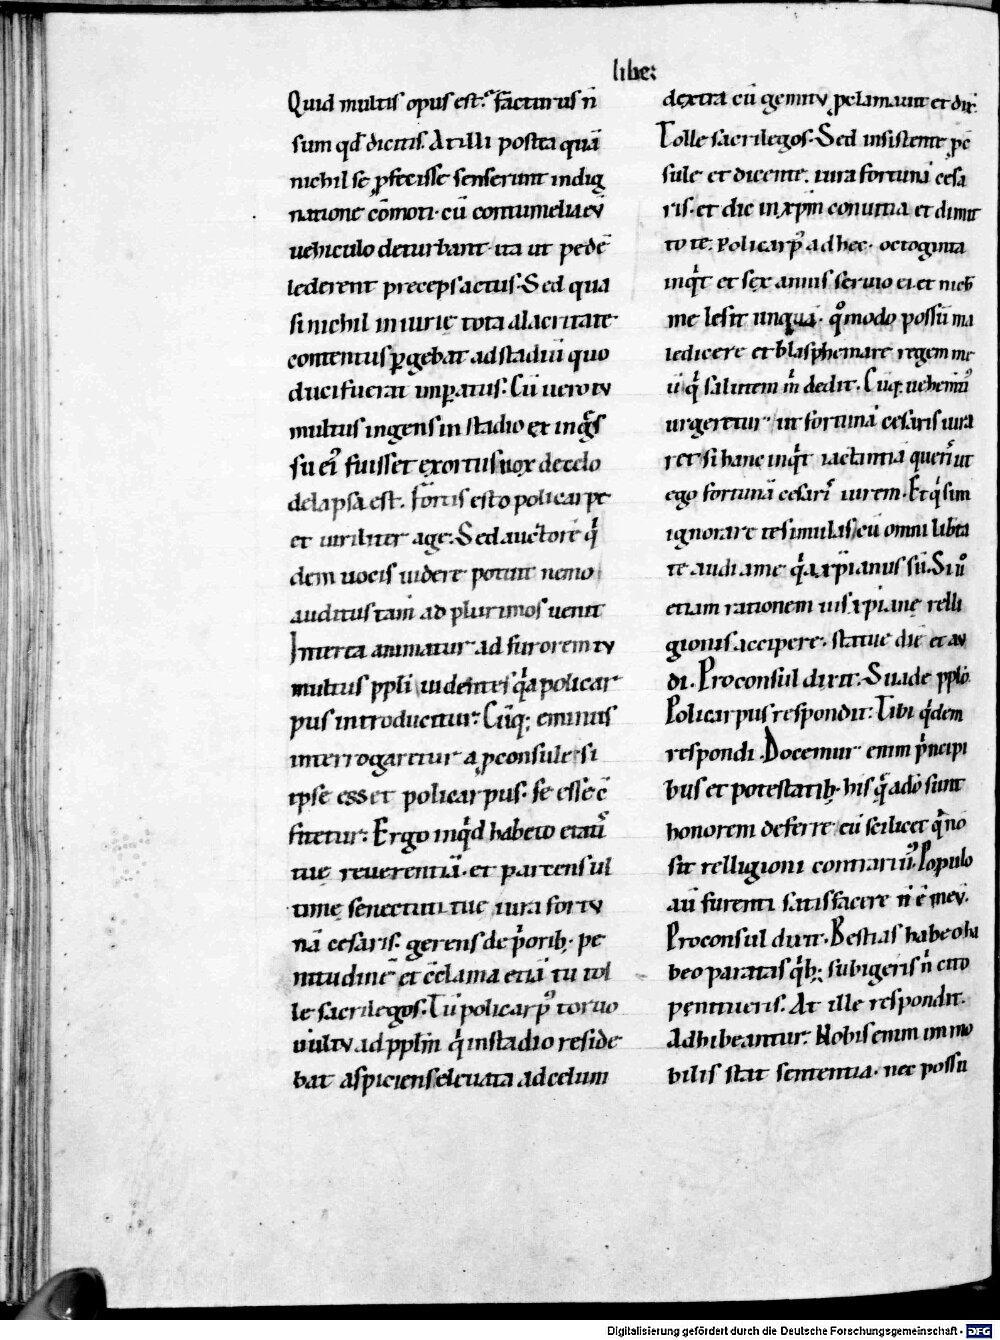 liber
Quid multis opus est. facturus n̄
sum qđ dicitis. At illi postea quā
nichil se ꝓfecisse senserunt indig
natione cōmoti. cū contumelia eū
uehiculo deturbant. ita ut pedē
lederent preceps actus. Sed qua
si nichil iniurię tota alacritate
contentus ꝑgebat ad stadiū quo
duci fuerat imꝑatus. Cū uero tu
multus ingens in stadio et inq̄s
su ei᾽ fuisset exortus uox de celo
delapsa est. Fortis esto policarpe
et uiriliter age. Sed auctorē qͥ
dem uocis uidere potuit nemo
auditus tam̄ ad plurimos uenit
Interea animatur ad furorem tu
multus ppli uidentes qͥa policar
pus introducitur. Cūq; eminus
interrogaretur a ꝓconsule si
ipse esset policarpus. se esse c̄
fitetur. Ergo inqͥd habeto etati᾽
tuę reuerentiā. et parcens ul
timę senectuti tuę iura fortu
nā cesaris. gerens de p̄orib; pe
nitudinē et c̄clama etiā tu tol
le sacrilegos. Tū policarp᾽ toruo
uultu ad pplm̄ qͥ in stadio reside
bat aspiciens eleuata ad celum
dextra cū gemitu ꝓclamauit et dix̄.
Tolle sacrilegos. Sed insistente ꝓc̄
sule et dicente. iura fortunā cesa
ris. et dic in xp̄m conuitia et dimit
to te. Policarp᾽ ad hec. octoginta
inqͥt et sex annis seruio ei. et nich̄
me lesit unquā. qͦmodo possū ma
ledicere et blasphemare regem me
ū qͥ salutem m̄ dedit. Cūq; uehem̄ti᾽
urgeretur ut fortunā cesaris iura
ret si hanc inqͥt iactantiā queri᾽ ut
ego fortunā cesari᾽ iurem. Et qͥ sim
ignorare te simulas. cū omni lib̄ta
te audi a me qͥa xp̄ianus sū. Si uͦ
etiam rationem uis xp̄iane relli
gionis accipere. statue diē et au
di. Proconsul dixit. Suade pplo.
Policarpus respondit. Tibi qͥdem
respondi. Docemur enim pͥncipi
bus et potestatib; his qͥ a dō sunt
honorem deferre eū scilicet qͥ no
sit relligioni contrariu᾽. Populo
aū furenti satisfacere n̄ ē meū.
Proconsul dixit. Bestias habeo ha
beo paratas qͥb; subigeris n̄ cito
penitueris. At ille respondit.
Adhibeantur. Nobis enim immo
bilis stat sententia. nec possū
Digitalisierung gefördert durch die Deutsche Forschungsgemeinschaft - DFG